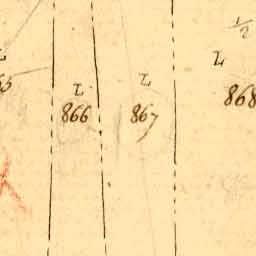 1/2
L
L
L
L
65
866
867
868